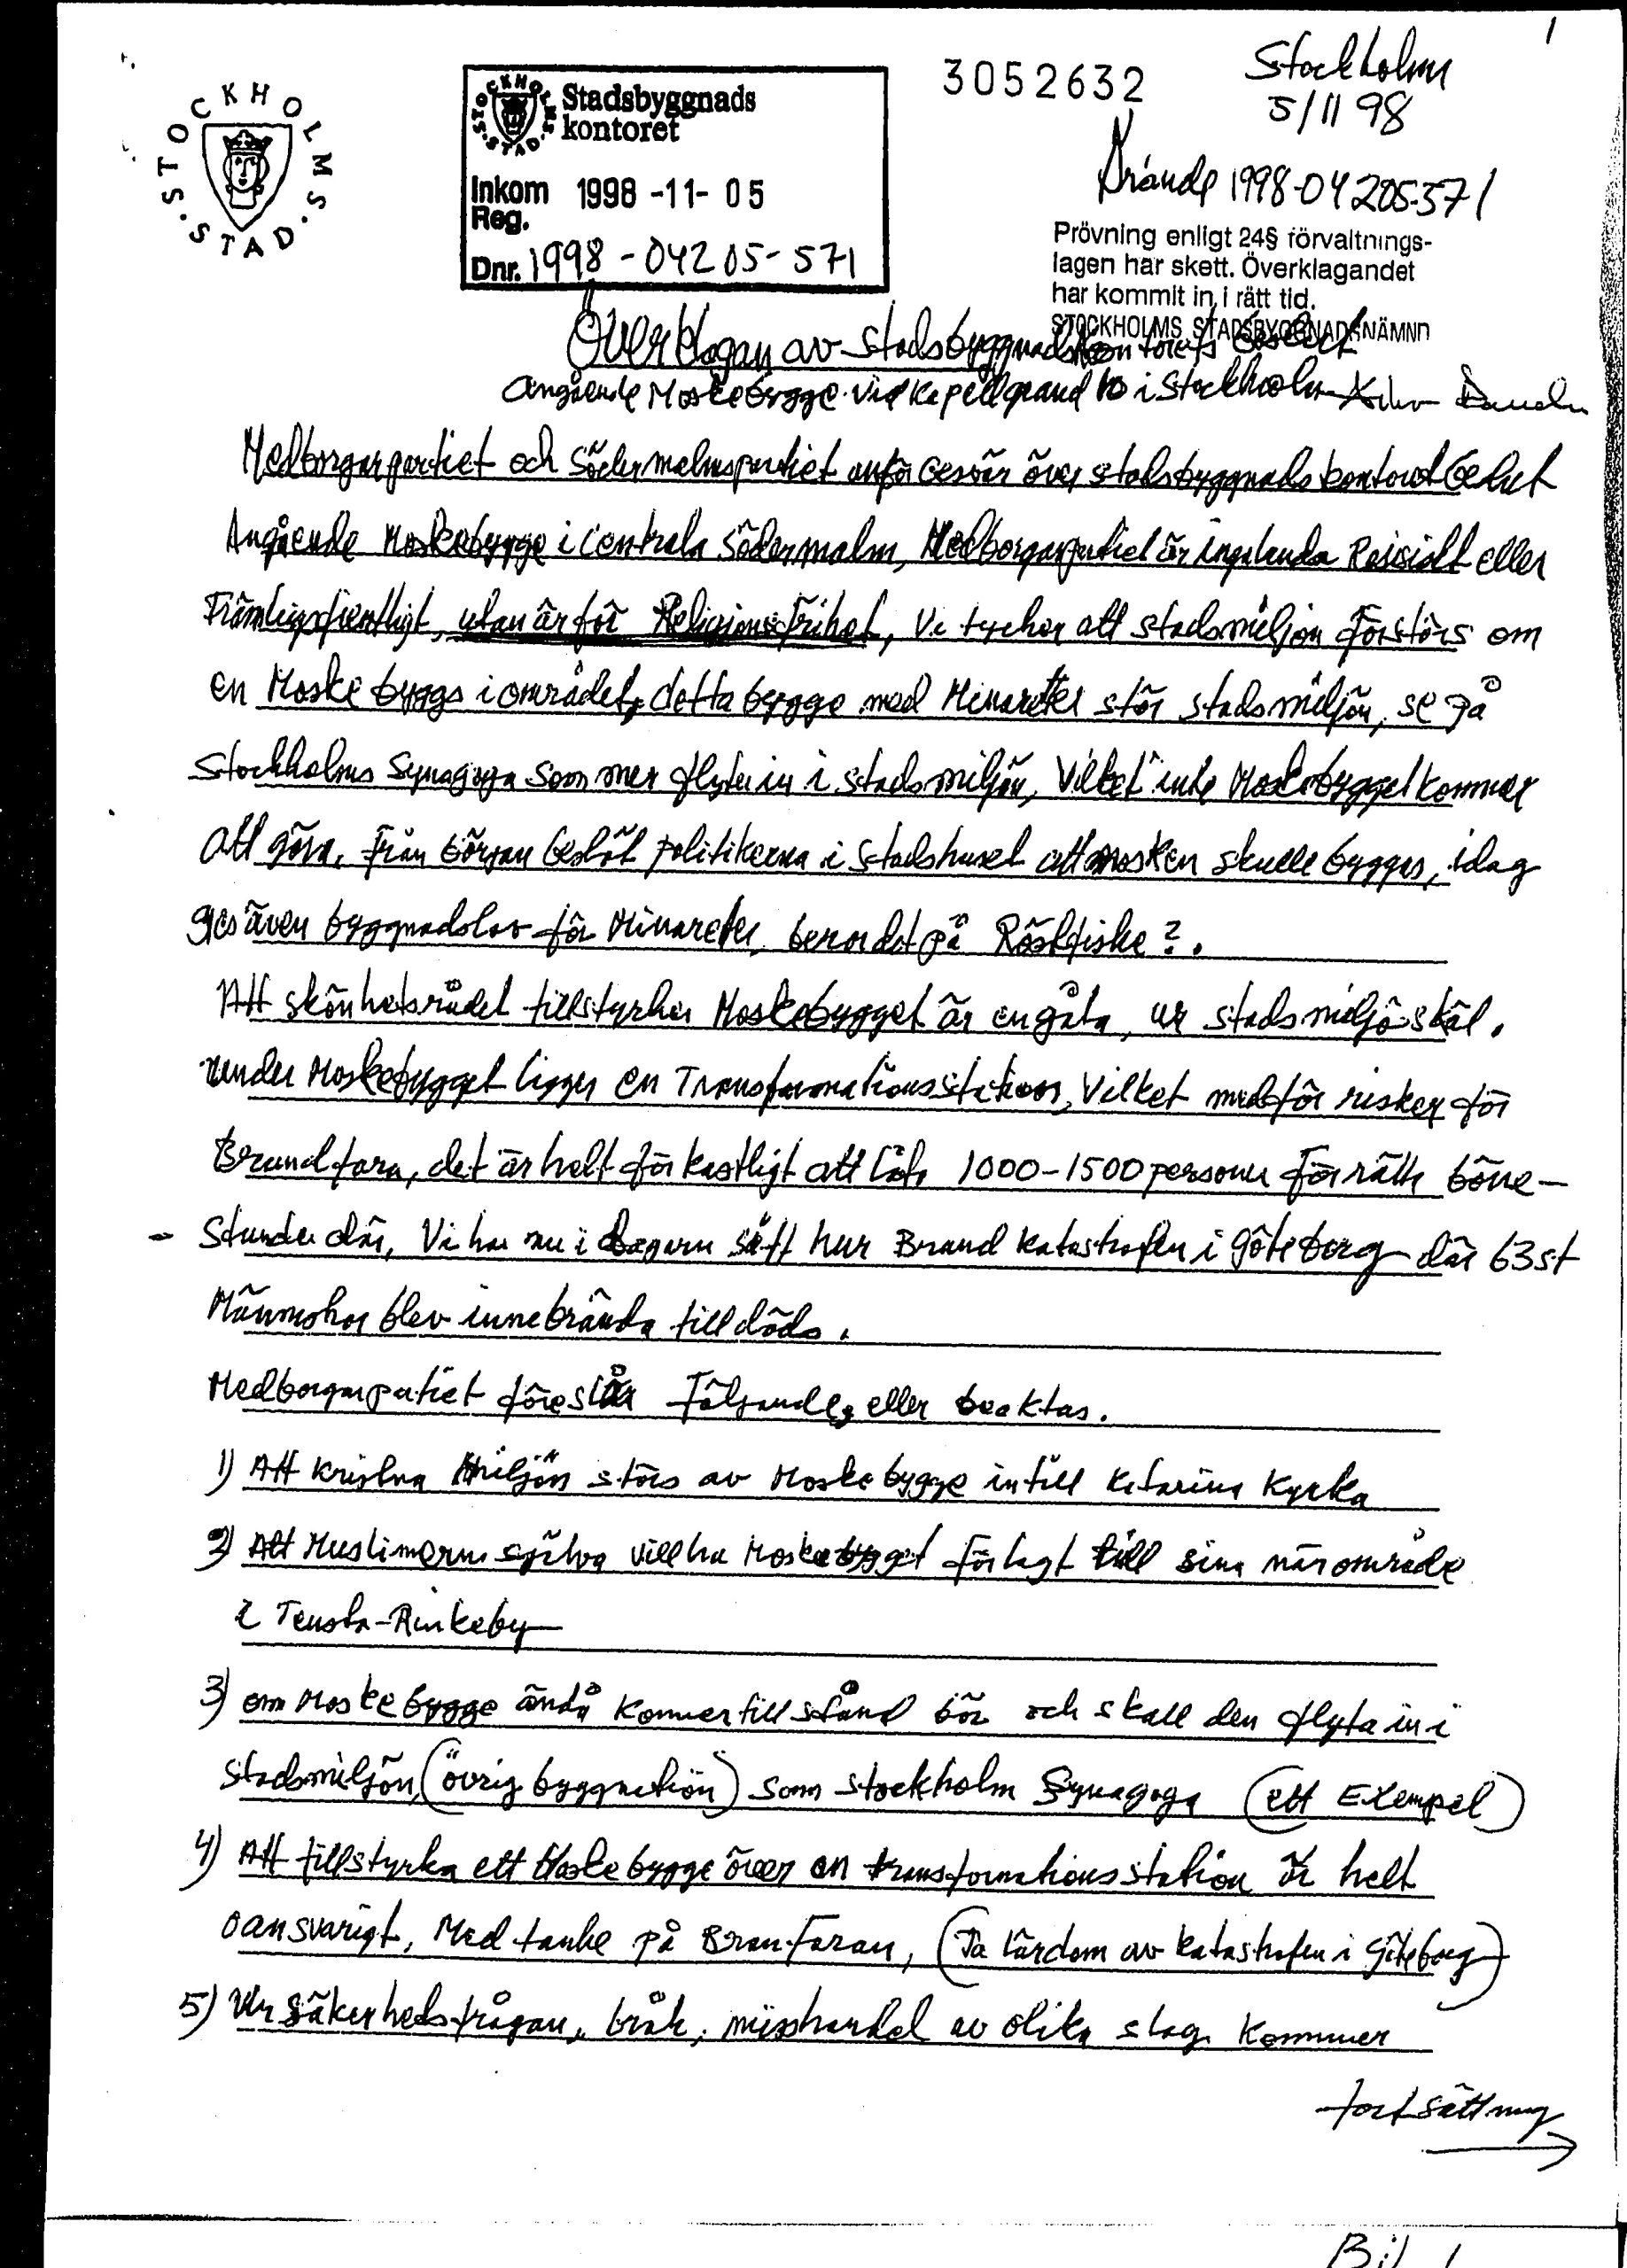 1
Stockholm
5/11 98
3052632
STOCKHOLMS STAD
STOCKHOLMS STAD
Stadsbyggnads
kontoret
Inkom 1998-11-05
Reg.
Dnr. 1998-04205-571
Ärände 1998-04205-571
Prövning enligt 24§ förvaltnings-
lagen har skett. Överklagandet
har kommit in i rätt tid.
STOCKHOLMS STADSBYGGNADSNÄMND
Överklagan av stadsbyggnadskontorets beslut
angående Moskebygge vid Kapellgränd 10 i Stockholm
Medborgarpartiet och Södermalmspartiet anför besvär över stadsbyggnadskontoret beslut
Angående Moskebygge i centrala Södermalm, Medborgarpartiet är ingalunda Rasistiskt eller
Främlingsfientligt, utan är för Religionsfrihet, Vi tycker att stadsmiljön förstörs om
en Moske byggs i området, detta bygge med Minareter stör stadsmiljön, se på
Stockholms Synagoga som mer flyter in i stadsmiljön, Vilket inte Moskebygget kommer
att göra. Från början beslöt politikerna i Stadshuset att mosken skulle byggas, idag
ges även byggnadslov för Minareter, beror det på Röstfiske?.
Att skönhetsrådet tillstyrker Moskebygget är en gåta, ur stadsmiljöskäl.
under Moskebygget ligger en Transformationsstation, Vilket medför risker för
Brandfara, det är helt förkastligt att låta 1000-1500 personer förrätta böne-
- stunder där, Vi har nu i dagarna sätt hur Brand katastrofen i Göteborg där 63 st
Männishor blev innebrända till döds.
Medborgarpartiet föreslår Följande, eller beaktas.
1) Att kristna Miljön störs av Moskebygge intill Katarina Kyrka
2) Att Muslimerna själva vill ha Moskebygget förlagt till sina närområde
i Tensta-Rinkeby
3) om Moskebygge ändå kommer till stånd bör och skall den flyta in i
stadsmiljön, (övrig byggnation) som stockholm Synagoga (ett Exempel)
4) Att tillstyrka ett Moskebygge över en transformationsstation är helt
oansvarigt, Med tanke på Branfaran, (Ta lärdom av katastrofen i Göteborg)
5) Ur säkerhetsfrågan, bråk, misshandel av olika slag kommer
fortsättning
Bil 1